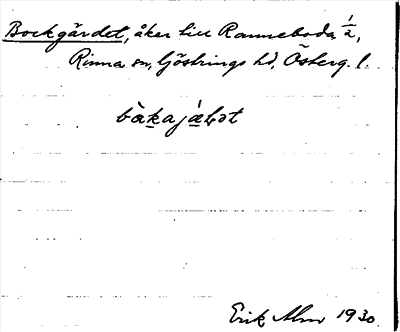 Bockgärdet, åker till Ranneboda 1/2,
Rinna sn, Göstrings hd, Österg. l.
bàkajǽḷət
Erik Alm 1930